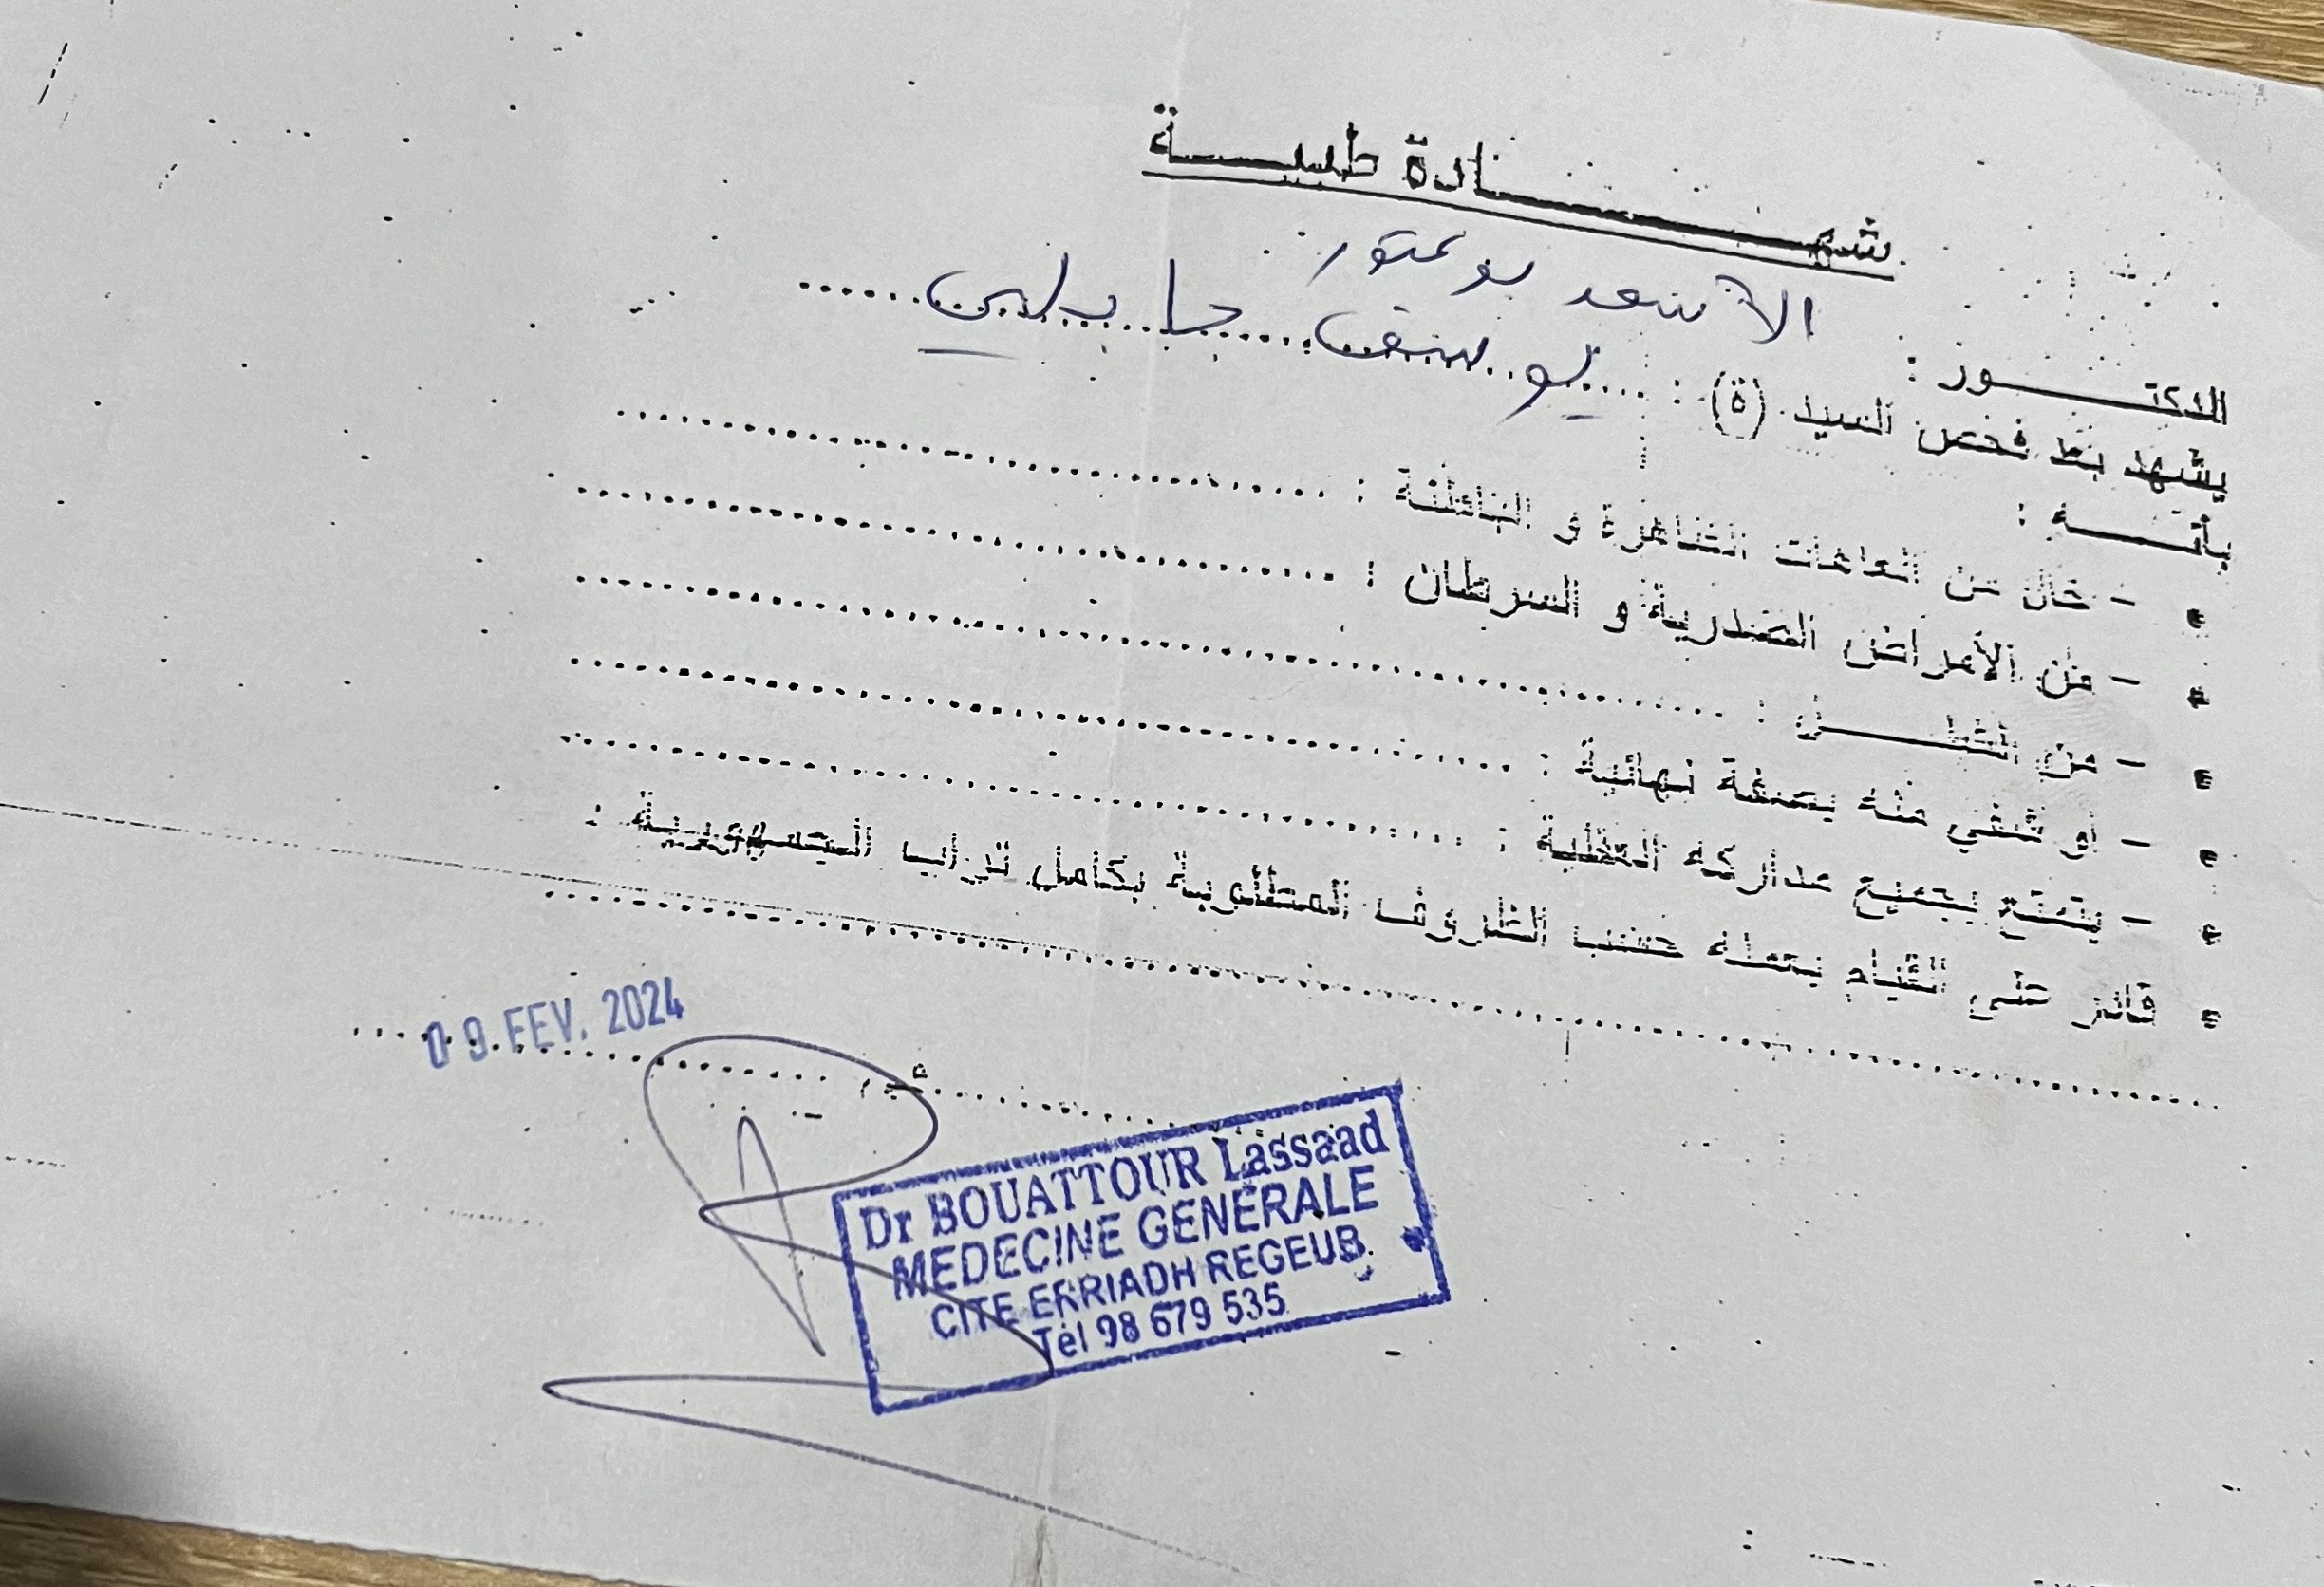 شهادة طبيـــة
الدكتـــور : الأسعد بوعتور
يشهد بعد فحص السيد (ة) : يوسف جابلي
بأنـــه :
- خال من العاهات الظاهرة و الباطنة :
- من الأمراض الصدرية و السرطان :
- من الشلـــل :
- أو شفي منه بصفة نهائية :
- يتمتع بجميع مداركه العقلية :
قادر على القيام بعمله حسب الظروف المطلوبة بكامل تراب الجمهورية :
في
09 FEV. 2024
Dr BOUATTOUR Lassaad
MEDECINE GENERALE
CITE ERRIADH REGEUB
Tél 98 679 535